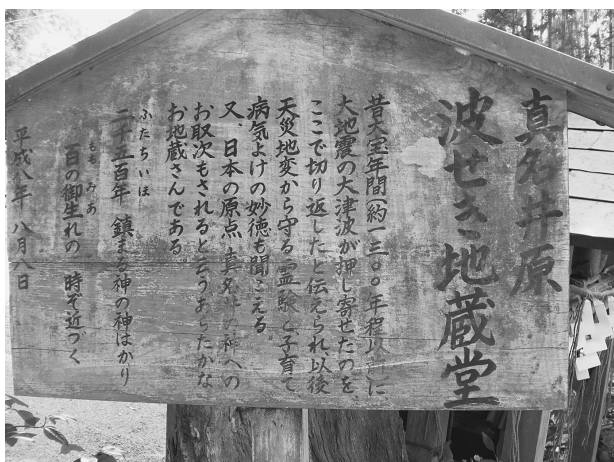 真名井原
波せき地蔵堂
昔大宝年間(約一三〇〇年程以前に
大地震の大津波が押し寄せたのを、
ここで切り返したと伝えられ、以後
天災地変から守る霊験と子育て、
病気よけの妙徳も聞こえる。
又、日本の原点、真名井の神への
お取次もされると云うあらたかな
お地蔵さんである。
ふたちいほ
二千五百年 鎮まる神の神はかり
もも みあ
百の御生れの 時ぞ近づく
平成八年 八月八日